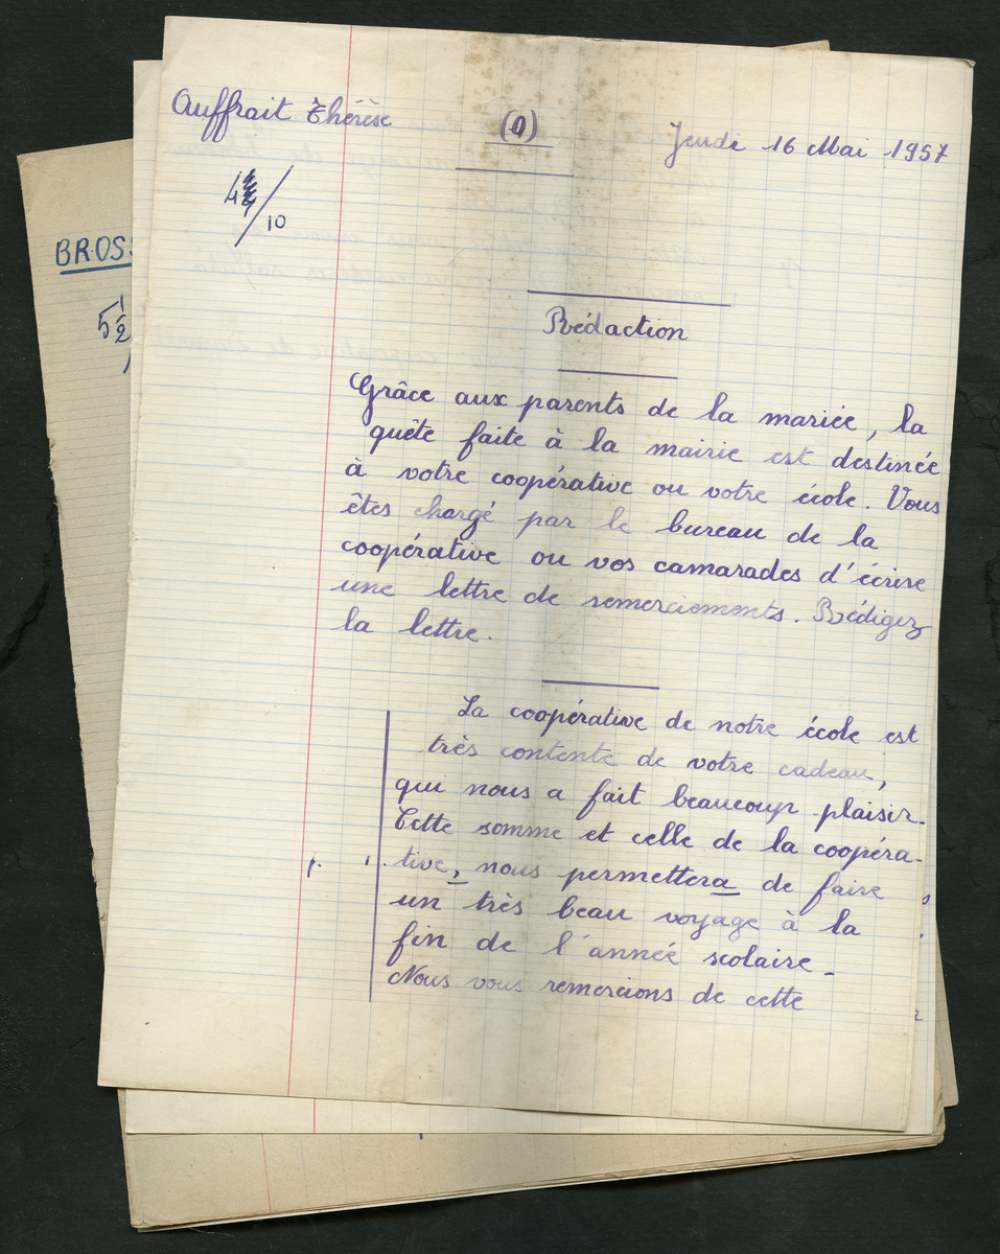 Auffrait Thérèse
(1)
Jeudi 16 Mai 1957
/10
BROS
5 1/2
Rédaction
Grâce aux parents de la mariée, la
quête faite à la mairie est destinée
à votre coopérative ou votre école. Vous
êtes chargé par le bureau de la
coopérative ou vos camarades d'écrire
une lettre de remerciements. Rédigez
la lettre.
La coopérative de notre école est
très contente de votre cadeau,
qui nous a fait beaucoup plaisir.
Cette somme et celle de la coopéra-
p. 1. tive, nous permettera de faire
un très beau voyage à la
fin de l'année scolaire.
Nous vous remercions de cette